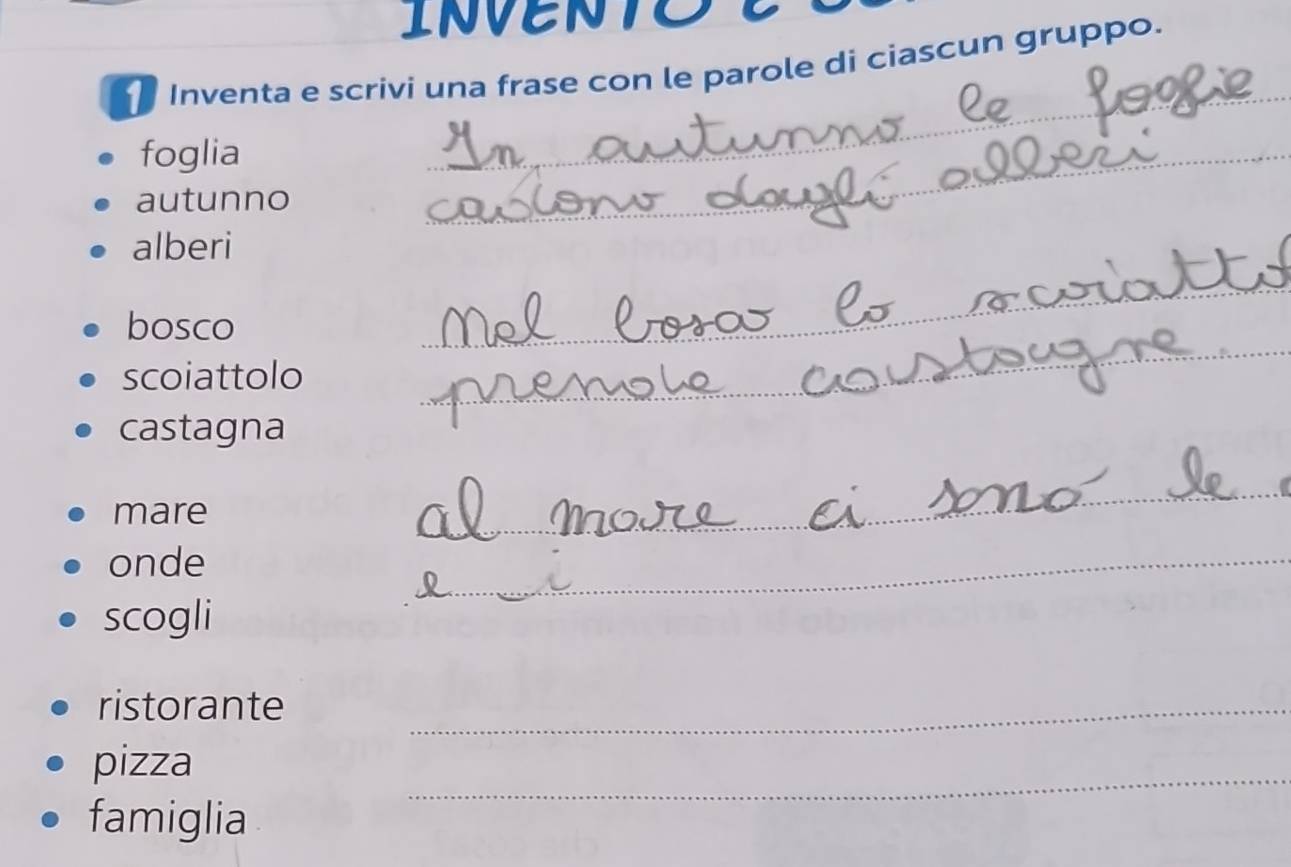 INVENTO E
1 Inventa e scrivi una frase con le parole di ciascun gruppo.
• foglia
• autunno
• alberi
In autunno le foglie
cadono dagli alberi
• bosco
• scoiattolo
• castagna
Nel bosco lo scoiattolo
prende castagne.
• mare
• onde
• scogli
al mare ci sono le
e i
• ristorante
• pizza
• famiglia